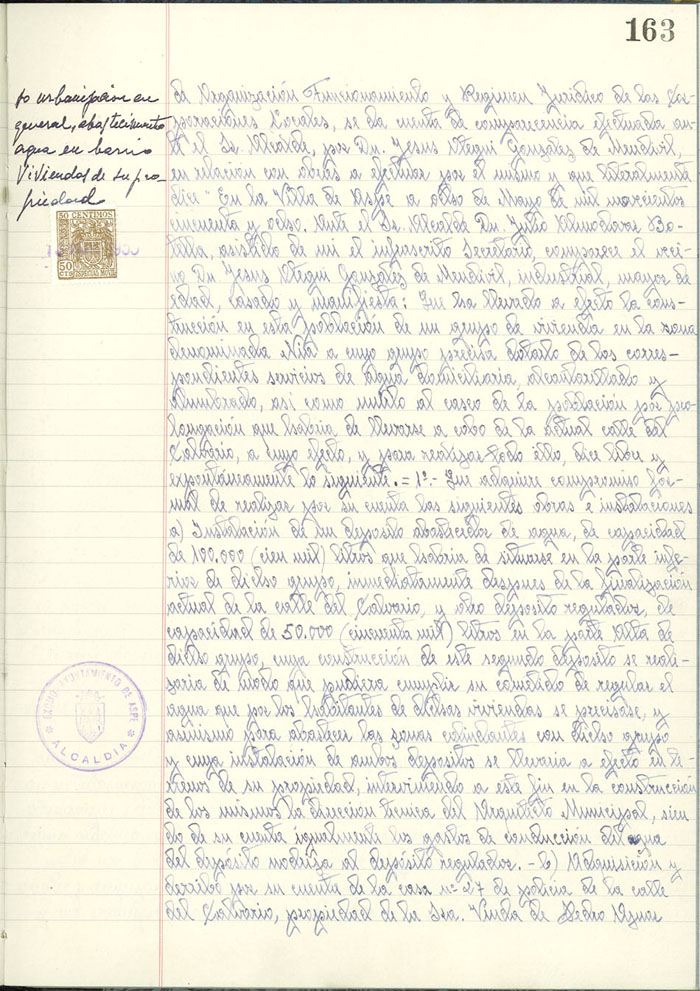 163
to urbanizacion en
general, abastecimiento
agua en barrio
Viviendas de su pro-
piedad
50 CENTIMOS
50
CTS
ESPECIAL MOVIL
AYUNTAMIENTO DE ASPE
ALCALDIA
de Organización Funcionamiento y Regimen Juridico de las Cor-
poraciones Locales, se da cuenta de comparecencia efectuada an-
te el Sr. Alcalde, por Dn. Jesus Otegui Gonzalez de Mendivil,
en relación con obras a efectuar por el mismo y que literalmente
dice "En la Villa de Aspe a ocho de Mayo de mil novecientos
cincuenta y ocho. Ante el Sr. Alcalde Dn. Julio Almodovar Bo-
tella, asistido de mi el infrascrito Secretario comparece el veci-
no Dn. Jesus Otegui Gonzalez de Mendivil, industrial, mayor de
edad, casado y manifiesta: Que ha llevado a efecto la cons-
trucción en esta población de un grupo de vivienda en la zona
denominada Nia a cuyo grupo precisa dotarlo de los corres-
pondientes servicios de agua domiciliaria, alcantarillado y
alumbrado, asi como unirlo al casco de la población por pro-
longación que habria de llevarse a cabo de la actual calle del
Calvario, a cuyo efecto, y para realizar todo ello, dice libre y
expontaneamente lo siguiente. = 1º.- Que adquiere compromiso for-
mal de realizar por su cuenta las siguientes obras e instalaciones
a) Instalación de un deposito abastecedor de agua, de capacidad
de 100.000 (cien mil) litros que habria de situarse en la parte infe-
rior de dicho grupo, inmediatamente despues de la finalización
actual de la calle del Calvario, y otro deposito regulador, de
capacidad de 50.000 (cincuenta mil) litros en la parte Alta de
dicho grupo, cuya construcción de este segundo deposito se reali-
zaria de modo que pudiera cumplir su cometido de regular el
agua que por los habitantes de dichas viviendas se precisase, y
asimismo para abastecer las zonas colindantes con dicho grupo
y cuya instalación de ambos depositos se llevaria a efecto en te-
rrenos de su propiedad, interviniendo a este fin en la construccion
de los mismos la direccion tecnica del Arquitecto Municipal, sien
do de su cuenta igualmente los gastos de conducción del agua
del depósito nodriza al depósito regulador. - b) Adquisición y
derribo por su cuenta de la casa nº 27 de policia de la calle
del Calvario, propiedad de la Sra. Viuda de Pedro